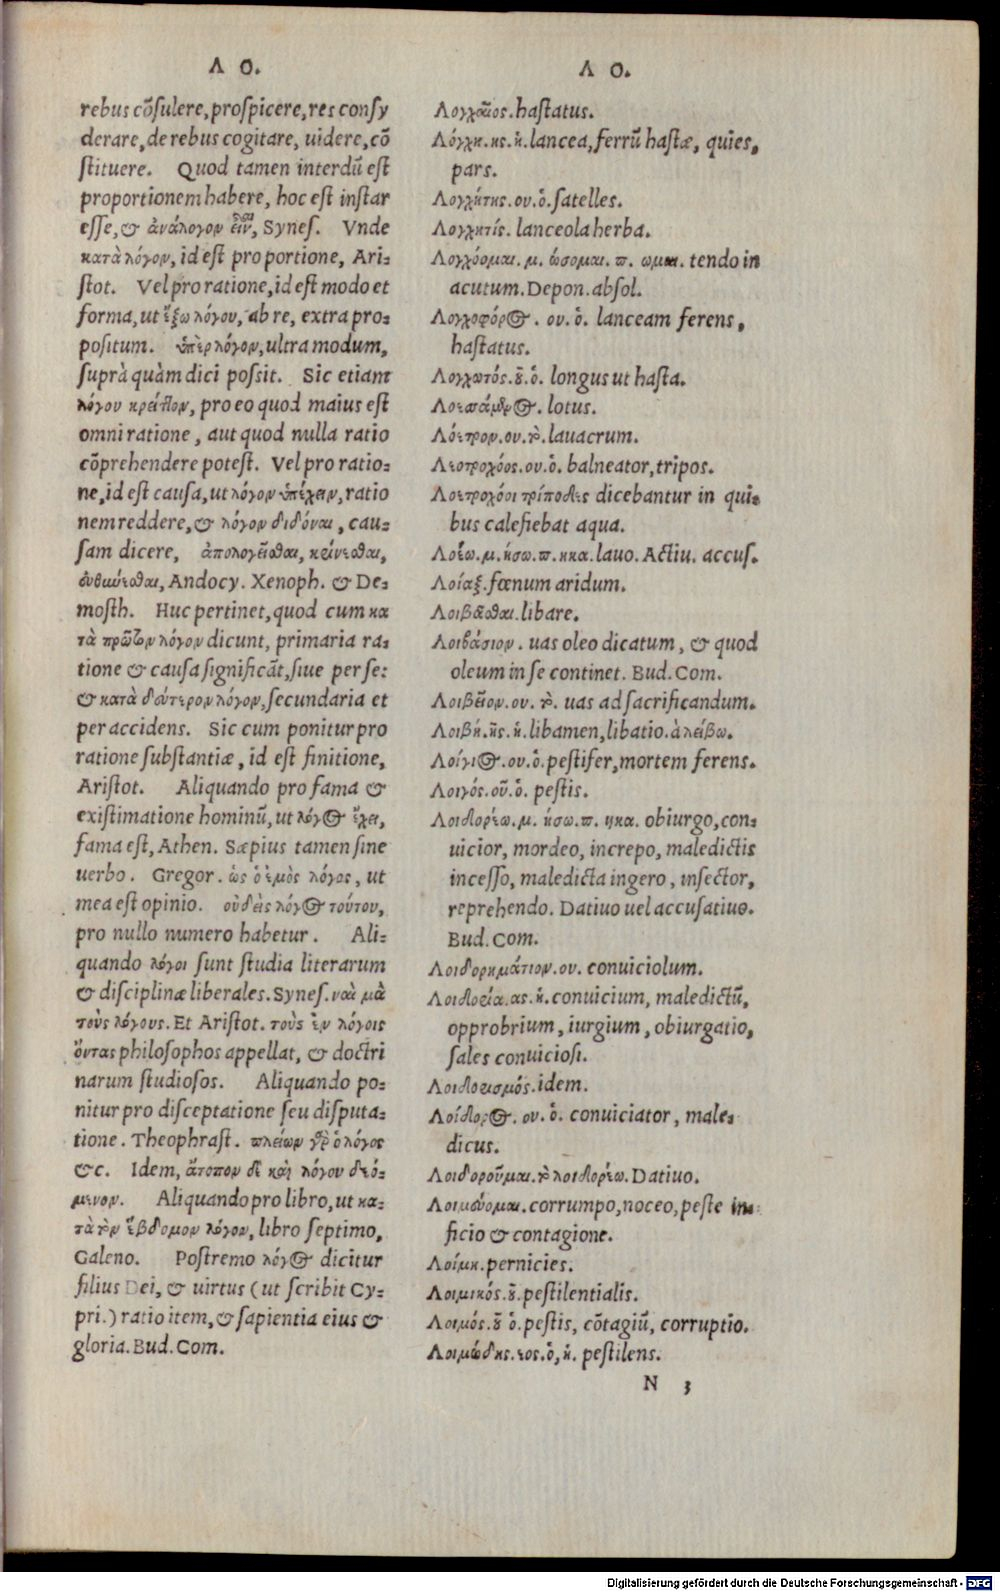 Λ Ο.
rebus cōſulere, proſpicere, res conſy
derare, de rebus cogitare, uidere, cō
ſtituere. Quod tamen interdū eſt
proportionem habere, hoc eſt inſtar
eſſe, & ἀνάλογον εἶναι, Syneſ. Vnde
κατὰ λόγον, id eſt proportione, Ari-
ſtot. Vel pro ratione, id eſt modo et
forma, ut ἔξω λόγου, ab re, extra pro-
poſitum. ὑπὲρ λόγον, ultra modum,
ſuprà quàm dici poſſit. Sic etiam
λόγου κρεῖττον, pro eo quod maius eſt
omni ratione, aut quod nulla ratio
cōprehendere poteſt. Vel pro ratio-
ne, id eſt cauſa, ut λόγον ὑπέχειν, ratio
nem reddere, & λόγον διδόναι, cau-
ſam dicere, ἀπολογεῖσθαι, κρίνεσθαι,
εὐθύνεσθαι, Andocy. Xenoph. & De-
moſth. Huc pertinet, quod cum κα
τὰ πρῶτον λόγον dicunt, primaria ra-
tione & cauſa ſignificāt, ſiue per ſe:
& κατὰ δεύτερον λόγον, ſecundaria et
per accidens. Sic cum ponitur pro
ratione ſubſtantiæ, id eſt finitione,
Ariſtot. Aliquando pro fama &
exiſtimatione hominū, ut λόγος ἔχει,
fama eſt, Athen. Sæpius tamen ſine
uerbo. Gregor. ὡς ὁ ἐμὸς λόγος, ut
mea eſt opinio. οὐδεὶς λόγος τούτου,
pro nullo numero habetur. Ali-
quando λόγοι ſunt ſtudia literarum
& diſciplinæ liberales. Syneſ. ναὶ μὰ
τοὺς λόγους. Et Ariſtot. τοὺς ἐν λόγοις
ὄντας philoſophos appellat, & doctri
narum ſtudioſos. Aliquando po-
nitur pro diſceptatione ſeu diſputa-
tione. Theophraſt. πλείων γὰρ ὁ λόγος
&c. Idem, ἄτοπον δὲ καὶ λόγου δεό-
μενον. Aliquando pro libro, ut κα-
τὰ τὸν ἕβδομον λόγον, libro ſeptimo,
Galeno. Poſtremo λόγος dicitur
filius Dei, & uirtus (ut ſcribit Cy-
pri.) ratio item, & ſapientia eius &
gloria. Bud. Com.
Λ Ο.
Λογχαῖος. haſtatus.
Λόγχη. ης. ἡ. lancea, ferrū haſtæ, quies,
pars.
Λογχήτης. ου. ὁ. ſatelles.
Λογχητίς. lanceola herba.
Λογχόομαι. μ. ώσομαι. π. ωμαι. tendo in
acutum. Depon. abſol.
Λογχοφόρος. ου. ὁ. lanceam ferens,
haſtatus.
Λογχωτός. οῦ. ὁ. longus ut haſta.
lotus.
Λόετρον. ου. τὸ. lauacrum.
Λεοτροχόος. ου. ὁ. balneator, tripos.
Λοετροχόοι τρίποδες dicebantur in qui-
bus calefiebat aqua.
Λοέω. μ. ήσω. π. ηκα. lauo. Actiu. accuſ.
Λοίαξ. fœnum aridum.
Λοιβᾶσθαι. libare.
Λοιβάσιον. uas oleo dicatum, & quod
oleum in ſe continet. Bud. Com.
Λοιβεῖον. ου. τὸ. uas ad ſacrificandum.
Λοιβή. ῆς. ἡ. libamen, libatio. ἀ λείβω.
Λοίγιος. ου. ὁ. peſtifer, mortem ferens.
Λοιγός. οῦ. ὁ. peſtis.
Λοιδορέω. μ. ήσω. π. ηκα. obiurgo, con-
uicior, mordeo, increpo, maledictis
inceſſo, maledicta ingero, inſector,
reprehendo. Datiuo uel accuſatiuo.
Bud. Com.
Λοιδορημάτιον. ου. conuiciolum.
Λοιδορία. ας. ἡ. conuicium, maledictū,
opprobrium, iurgium, obiurgatio,
ſales conuicioſi.
Λοιδορισμός. idem.
Λοίδορος. ου. ὁ. conuiciator, male-
dicus.
Λοιδοροῦμαι. τὸ λοιδορέω. Datiuo.
Λοιμεύομαι. corrumpo, noceo, peſte in-
ficio & contagione.
Λοίμη. pernicies.
Λοιμικός. οῦ. peſtilentialis.
Λοιμός. οῦ ὁ. peſtis, cōtagiū, corruptio.
Λοιμώδης. εος. ὁ, ἡ. peſtilens.
N 3
Digitalisierung gefördert durch die Deutsche Forschungsgemeinschaft - DFG